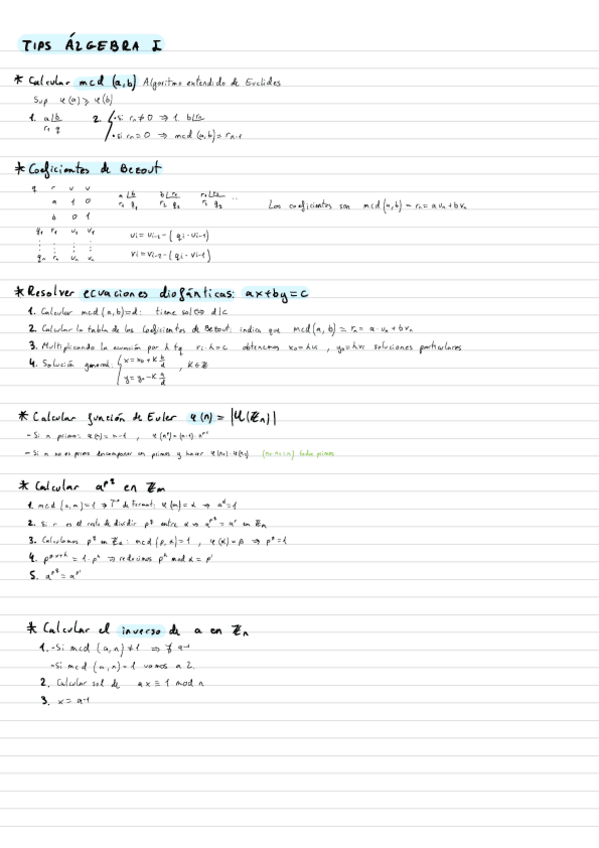 TIPS ÁLGEBRA I
* Calcular mcd (a,b) Algoritmo extendido de Euclides
Sup φ(a) ≥ φ(b)
1. a | b 2. { • si r₁ ≠ 0 ⇒ 1. b | r₁
r₁ q • si rₙ = 0 ⇒ mcd (a,b) = rₙ₋₁
* Coeficientes de Bezout
q r u v
a 1 0 a | b b | r₁ r₁ | r₂ ...
b 0 1 r₁ q₁ r₂ q₂ r₃ q₃ Los coeficientes son mcd(a,b) = rₙ = a uₙ + b vₙ
q₁ r₁ u₁ v₁ ui = ui-2 - (qi · ui-1)
qₙ rₙ uₙ vₙ vi = vi-2 - (qi · vi-1)
* Resolver ecuaciones diofánticas: ax+by=c
1. Calcular mcd (a,b)=d: tiene sol ⇔ d|c
2. Calcular la tabla de los Coeficientes de Bezout: indica que mcd(a,b) = rₙ = a·uₙ + bvₙ
3. Multiplicando la ecuación por h tq ri·h=c obtenemos x₀=hu, y₀=hv soluciones particulares
4. Solución general: { x = x₀ + k b/d , k∈ℤ
y = y₀ - k a/d
* Calcular función de Euler φ(n) = |U(ℤn)|
- Si n primo: φ(n) = n-1 ,
- Si n no es primo descomponer en primos y hacer todo primos
* Calcular a^p^q en ℤm
1. mcd (a,m)=1 ⇒ Tª de Fermat: φ(m)=α ⇒ a^α=1
2. Si r es el resto de dividir p^q entre α ⇒ a^p^q = a^r en ℤm
3. Calculamos p^q en ℤα: mcd (p,α)=1 , φ(α)=β ⇒ p^β=1
4. = 1 · ⇒ reducimos mod α =
5.
* Calcular el inverso de a en ℤn
1. - Si mcd (a,n) ≠ 1 ⇒ ∄ a-1
- Si mcd (a,n) = 1 vamos a 2.
2. Calcular sol de ax ≡ 1 mod n
3. x = a-1